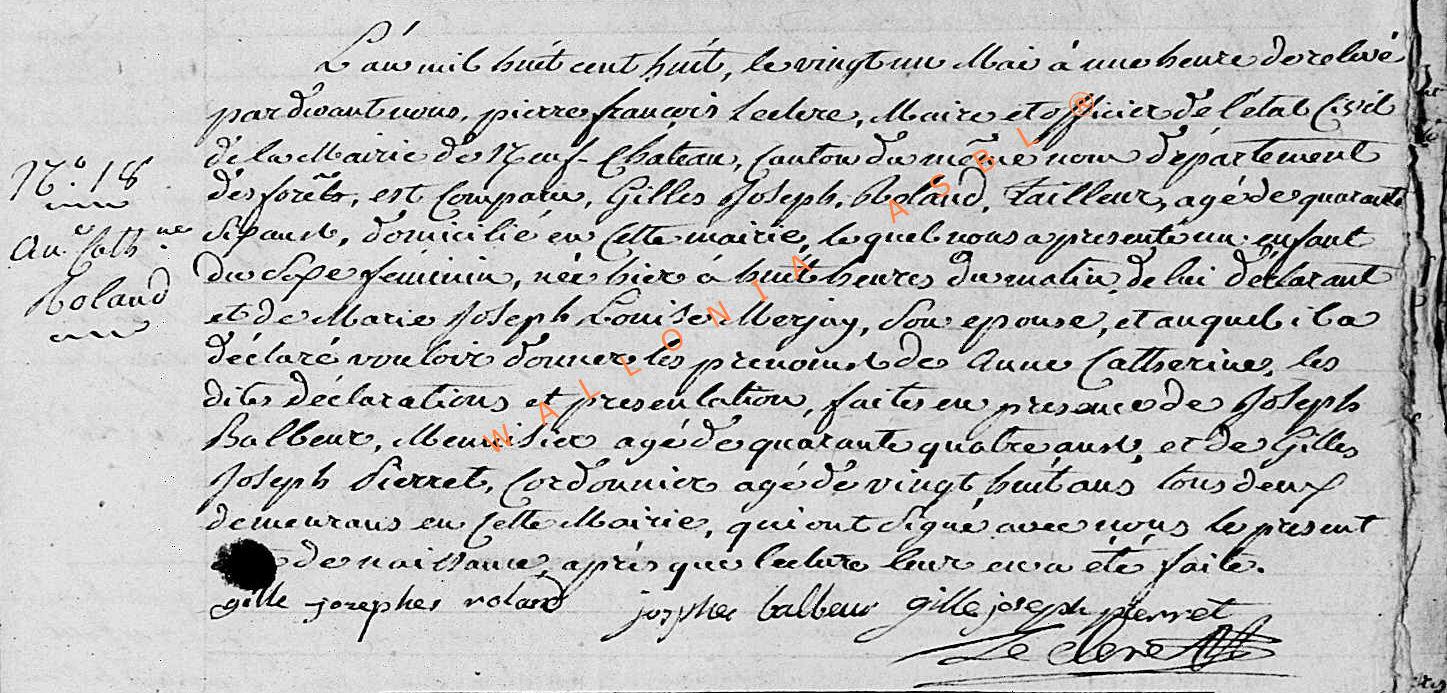 N.o 18
an.e Cath.ne
Roland
L'an mil huit cent huit, le vingt un Mai à une heure de relevé
pardevant nous, pierre françois Leclerc, Maire et officier de l'état Civil
de la Mairie de Neuf-Chateau, Canton du même nom département
des forêts, est Comparu, Gilles Joseph Roland, Tailleur, agé de quarante
Six ans, domicilié en Cette mairie, lequel nous a presenté un enfant
du Sexe féminin, née hier à huit heures du matin, de lui déclarant
et de Marie Joseph Louise Merjay, Son epouse, et auquel il a
déclaré vouloir donner les prenoms de Anne Catherine, les
dites déclarations et presentation, faites en presence de Joseph
Balbeur, Menuisier agé de quarante quatre ans, et de Gilles
Joseph Pierret, Cordonnier agé de vingt huit ans tous deux
demeurans en Cette Mairie, qui ont Signé avec nous le present
de naissance, après que lecture leur en a été faite.
gille josephes roland josephes balbeur gille joseph pierret
Leclerc
WALLONIA ASBL ®